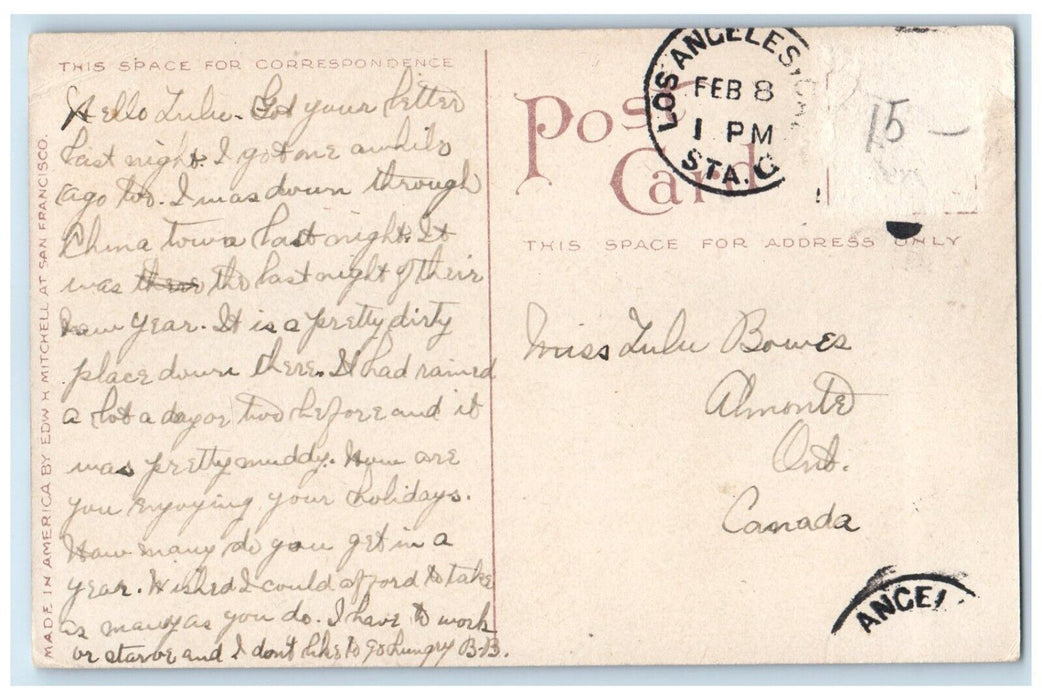 THIS SPACE FOR CORRESPONDENCE
Hello Lulu. Got your letter
last night. I got one awhile
ago too. I was down through
China town last night. It
was the last night of their
New Year. It is a pretty dirty
place down there. It had rained
a lot a day or two before and it
was pretty muddy. How are
you enjoying your holidays.
How many do you get in a
year. Wished I could afford to take
as many as you do. I have to work
or starve and I don't like to go hungry B.B.
MADE IN AMERICA BY EDW H MITCHELL AT SAN FRANCISCO.
Post
Card
LOS ANGELES, CAL
FEB 8
1 PM
STA. C
15 —
THIS SPACE FOR ADDRESS ONLY
Miss Lulu Bowes
Almonte
Ont.
Canada
ANGEL